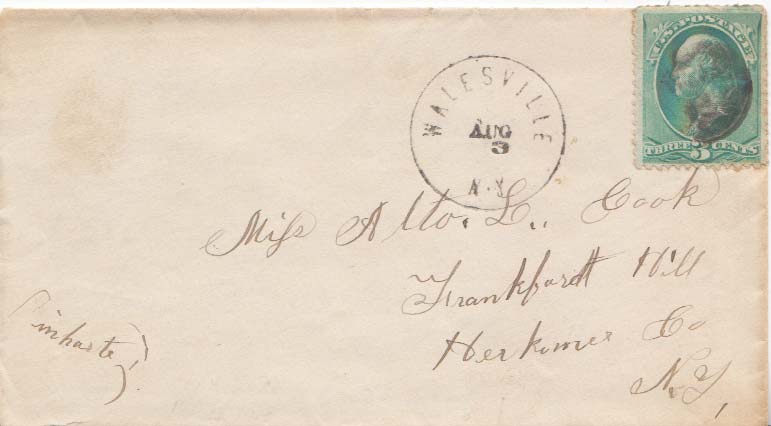 U.S. POSTAGE
THREE 3 CENTS
WALESVILLE
AUG
3
N.Y.
Miss Alto. L.. Cook
Frankfordt Hill
Herkimer Co
N.Y,
(in haste)